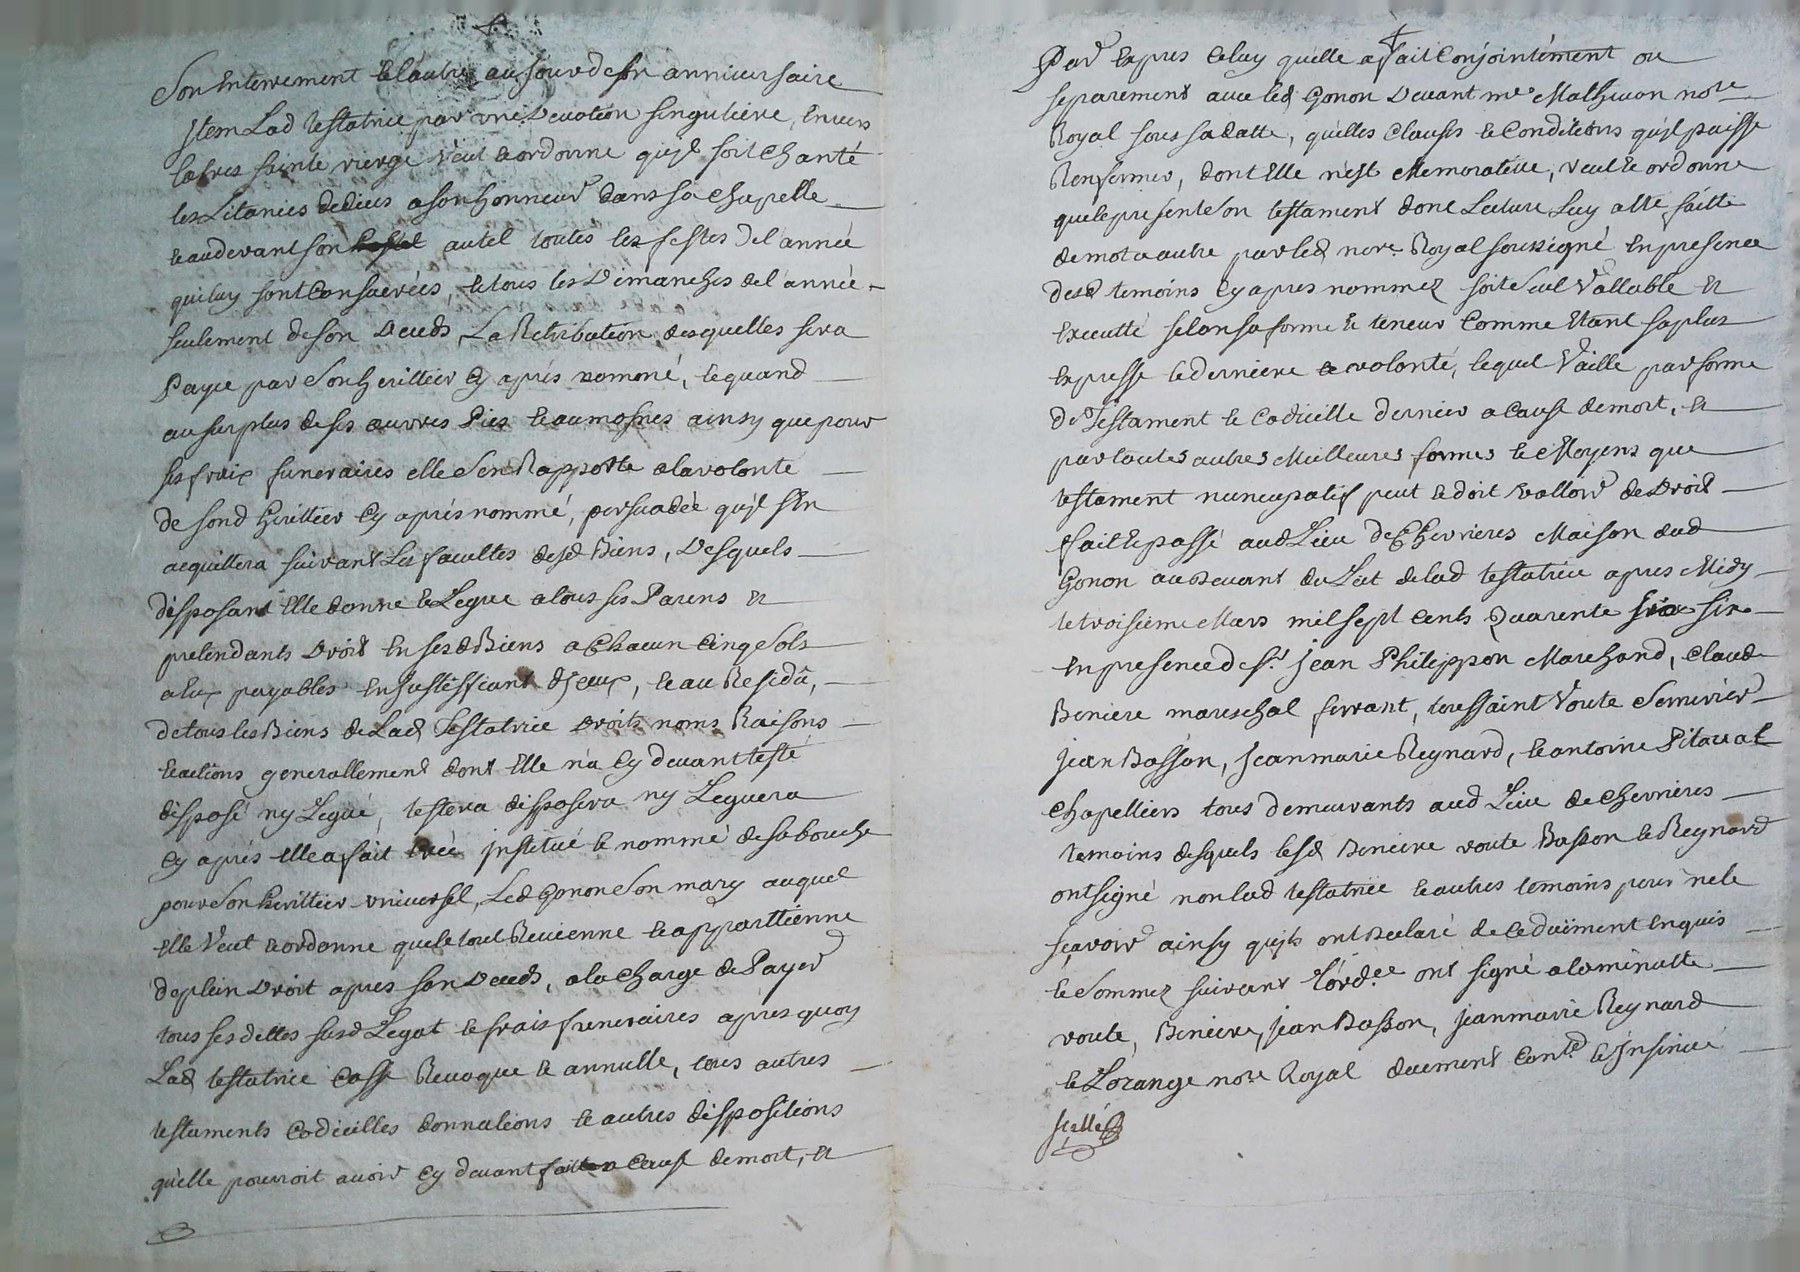 Son Enterrement et l'autre au jour de son anniversaire
Item Lad testatrice par une Devotion singuliere, Envers
la tres sainte vierge veut et ordonne qu'jl soit Chanté
les Litanies dediées a son honneur dans sa Chapelle
et au devant son autel toutes les festes de l'année
qui luy sont Consacrées, et tous les Dimanches de l'année
seulement de son Deceds, La Retribution desquelles sera
Payée par son heritier Cy aprés nommé, et quand
au surplus de ses œuvres Pies et aumosnes ainsy que pour
ses fraix funeraires elle s'en Rapporte a la volonte
de sond heritier Cy aprés nommé, persuadée qu'jl s'En
acquittera suivant Les facultes desd Biens, Desquels
disposant Elle donne et Legue a tous ses Parens Et
pretendants Droit En sesd Biens a Chacun Cinq Sols
a Eux payables En justiffiant d'jceux, et au Residû,
de tous les Biens de Lad testatrice Droits noms Raisons
et actions generallement dont Elle n'a Cy devant testé
disposé ny Legué, testera disposera ny Leguera
Cy aprés Elle a fait Créé jnstitué et nommé de sa bouche
pour Son heritier universel, Led Gonon Son mary auquel
Elle Veut et ordonne que le tout Revienne et appartienne
de plein Droit apres son Deceds, a la Charge de Payer
tous ses dettes susd Legat et frais funeraires aprés quoy
Lad testatrice Casse Revoque et annulle, tous autres
testaments Codicilles donnations et autres dispositions
qu'elle pourroit avoir Cy devant fait a Cause de mort, Et
Par Expres Celuy qu'elle a fait Conjointement ou
separement avec led Gonon Devant me Mathevon nore
Royal sous sa datte, qu'elles Clauses et Conditions qu'jl puisse
Renfermer, dont Elle n'est Memorative, veut Et ordonne
que le present Son testament dont Lecture Luy a été faitte
de mot a autre par led nore Royal soussigné En presence
desd temoins Cy apres nommez soit Seul Vallable Et
Executté selon sa forme Et teneur Comme Etant sa plus
Expresse et derniere volonté, lequel Vaille par forme
De Testament et Codicille dernier a Cause de mort, Et
par toutes autres Meilleures formes et Moyens que
testament nuncupatif peut et doit valloir de Droit
fait Et passé aud Lieu de Chevrieres Maison dud
Gonon au Devant du Lit de lad testatrice apres Midy
le troisième Mars mil sept cents Quarente six
En presence de Sr. jean Philippon Marchand, Claude
Beniere mareschal ferrant, toussaint Voute Serrurier
jean Basson, jean marie Reynard, et antoine Pitaval
Chapelliers tous demeurants aud Lieu de Chevrieres
temoins desquels lesd Beniere voute Basson et Reynard
ont signé non lad testatrice et autres temoins pour ne le
sçavoir ainsy qu'jls ont Declaré de Ce duëment Enquis
et Sommez suivant l'ord.ce ont signé a la minutte
voute, Beniere, jean Basson, jean marie Reynard
et Lorange nore Royal duement Contlé et jnsinué
scellé